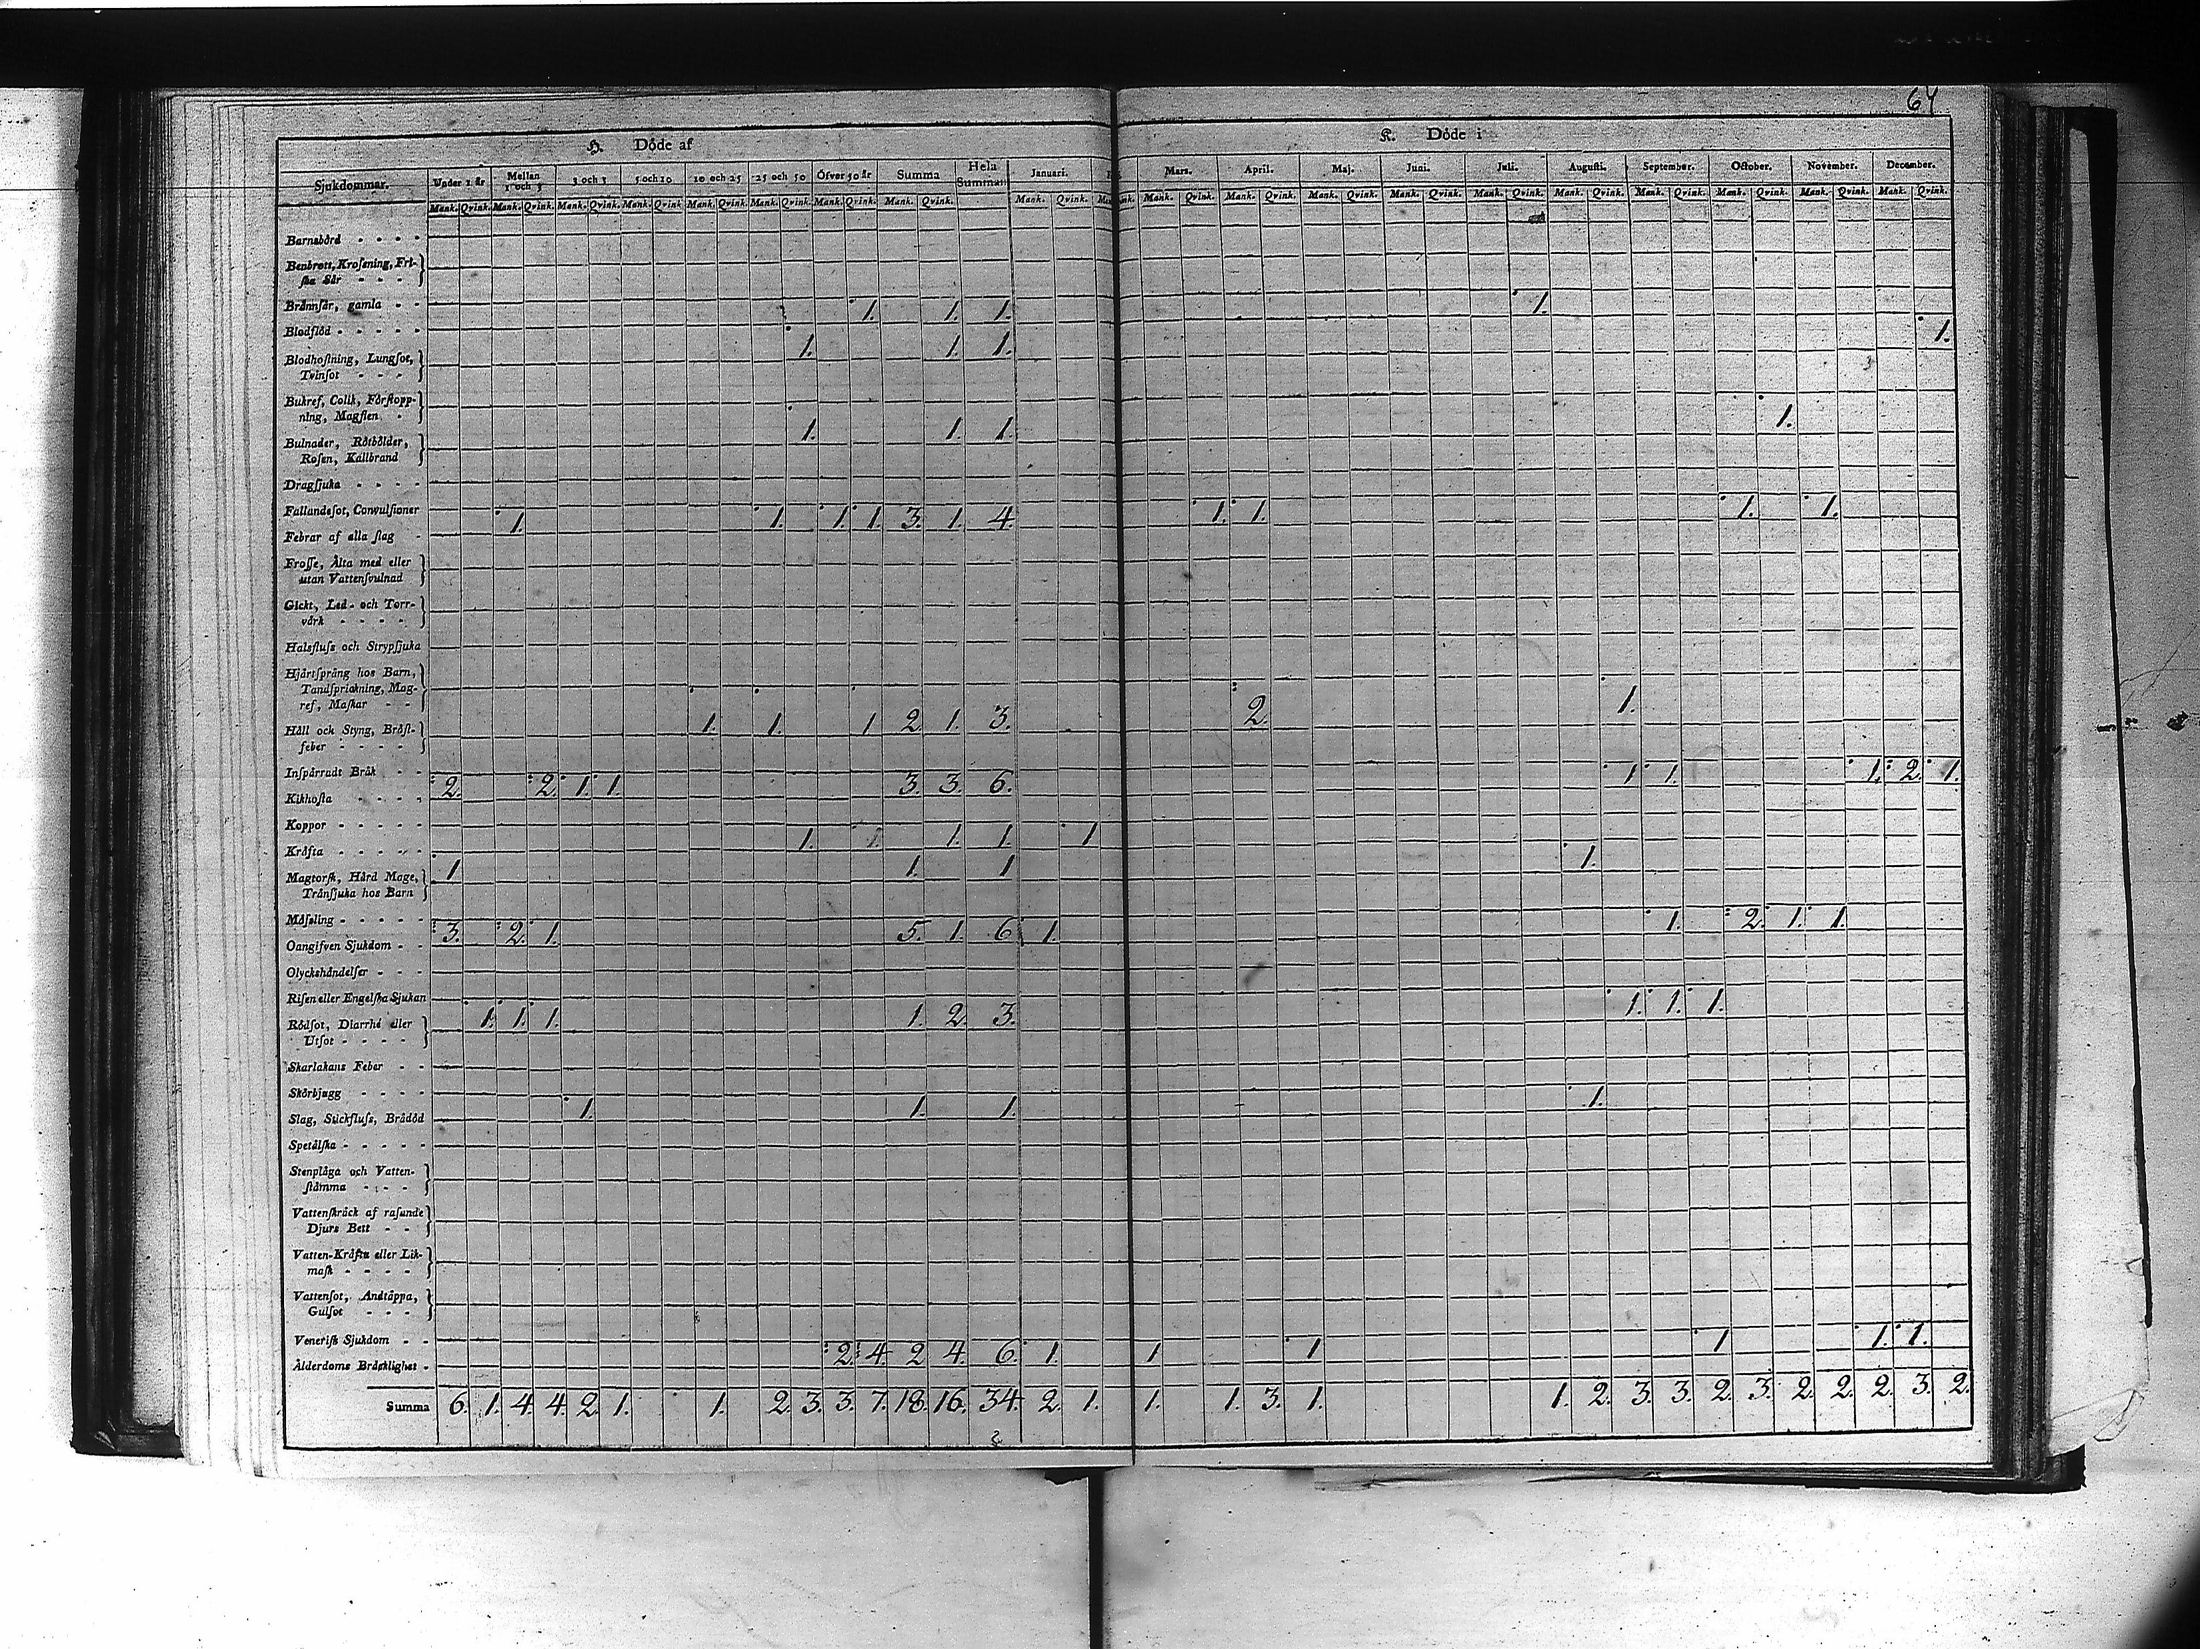 64
H. Döde af
K. Döde i
Sjukdommar. Under 1 år Mellan 1 och 3 3 och 5 5 och 10 10 och 25 25 och 50 Öfver 50 år Summa Hela Summan Januari. Mars. April. Maj. Juni. Juli. Augusti. September. October. November. December.
Mank. Qvink. Mank. Qvink. Mank. Qvink. Mank. Qvink. Mank. Qvink. Mank. Qvink. Mank. Qvink. Mank. Qvink. Mank. Qvink. Mank. Qvink. Mank. Qvink. Mank. Qvink. Mank. Qvink. Mank. Qvink. Mank. Qvink. Mank. Qvink. Mank. Qvink. Mank. Qvink. Mank. Qvink.
Barnsbörd
Benbrott, Kroſsning, Fri-
ſka Sår
Brännſår, gamla
1. 1. 1. 1.
Blodflöd
1. 1. 1. 1.
Blodhoſtning, Lungſot,
Tvinſot
Bukref, Colik, Förſtopp-
ning, Magſten
1. 1. 1. 1.
Bulnader, Rötbölder,
Roſen, Kallbrand
Dragſjuka
Fallandeſot, Convulſioner
1. 1. 1. 1. 3. 1. 4. 1. 1. 1. 1.
Febrar af alla ſlag
Froſſe, Älta med eller
utan Vattenſvulnad
Gickt, Led- och Torr-
värk
Halsfluſs och Strypſjuka
Hjärtſpräng hos Barn,
Tandſprickning, Mag-
ref, Maſkar
1. 1. 1 2. 1. 3. 2. 1.
Håll och Styng, Bröſt-
feber
Inſpärradt Bråk
2. 2. 1. 1. 3. 3. 6. 1. 1. 1. 2. 1.
Kikhoſta
Koppor
1. 1. 1. 1. 1
Kräfta
1 1. 1 1.
Magtorſk, Hård Mage,
Tränſjuka hos Barn
Mäſsling
3. 2. 1. 5. 1. 6 1. 1. 2. 1. 1.
Oangifven Sjukdom
Olyckshändelſer
Riſen eller Engelſka Sjukan
1. 1. 1. 1. 2. 3. 1. 1. 1.
Rödſot, Diarrhé eller
Utſot
Skarlakans Feber
Skörbjugg
1. 1. 1. 1.
Slag, Stickfluſs, Brådöd
Spetälſka
Stenplåga och Vatten-
ſtämma
Vattenſkräck af raſande
Djurs Bett
Vatten-Kräfta eller Lik-
maſk
Vattenſot, Andtäppa,
Gulſot
Veneriſk Sjukdom
2. 4. 2 4. 6. 1. 1 1 1 1. 1.
Ålderdoms Bräcklighet
Summa 6. 1. 4. 4. 2. 1. 1. 2. 3. 3. 7. 18. 16. 34. 2. 1. 1. 1. 3. 1. 1. 2. 3. 3. 2. 3. 2. 2. 2. 3. 2.